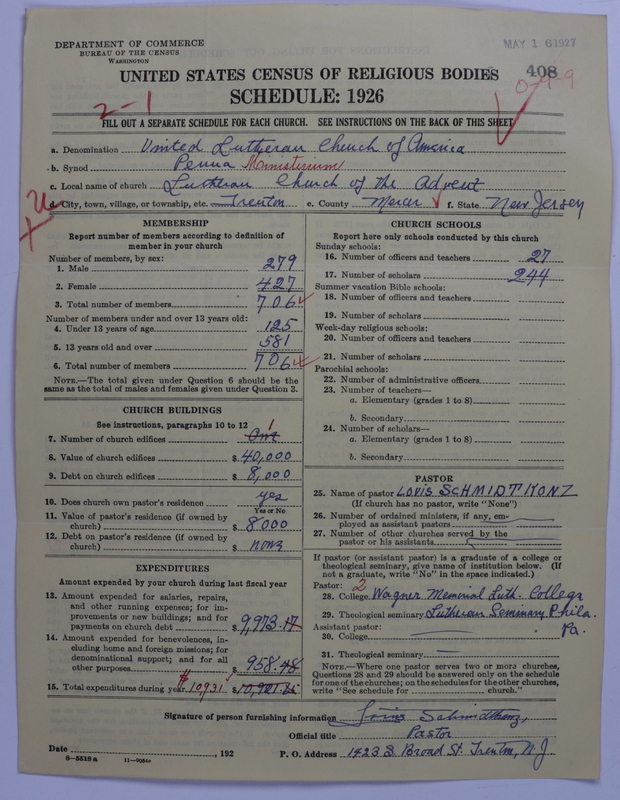 DEPARTMENT OF COMMERCE
BUREAU OF THE CENSUS
WASHINGTON
MAY 16 1927
408
0-9-9
UNITED STATES CENSUS OF RELIGIOUS BODIES
SCHEDULE: 1926
2-1
FILL OUT A SEPARATE SCHEDULE FOR EACH CHURCH. SEE INSTRUCTIONS ON THE BACK OF THIS SHEET
a. Denomination United Lutheran Church of America
b. Synod Penna Ministerium
c. Local name of church Lutheran Church of the Advent
d. City, town, village, or township, etc. Trenton e. County Mercer f. State New Jersey
MEMBERSHIP
Report number of members according to definition of
member in your church
Number of members, by sex:
1. Male 279
2. Female 427
3. Total number of members 706
Number of members under and over 13 years old:
4. Under 13 years of age 125
5. 13 years old and over 581
6. Total number of members 706
NOTE.—The total given under Question 6 should be
same as the total of males and females given under Question 3.
CHURCH BUILDINGS
See instructions, paragraphs 10 to 12
7. Number of church edifices One 1
8. Value of church edifices $ 40,000
9. Debt on church edifices $ 8,000
10. Does church own pastor's residence yes
Yes or No
11. Value of pastor's residence (if owned by
church) $ 8000
12. Debt on pastor's residence (if owned by
church) $ none
EXPENDITURES
Amount expended by your church during last fiscal year
13. Amount expended for salaries, repairs,
and other running expenses; for im-
provements or new buildings; and for
payments on church debt $ 9,973.17
14. Amount expended for benevolences, in-
cluding home and foreign missions; for
denominational support; and for all
other purposes $ 958.48
15. Total expenditures during year $10931 $
CHURCH SCHOOLS
Report here only schools conducted by this church
Sunday schools:
16. Number of officers and teachers 27
17. Number of scholars 244
Summer vacation Bible schools:
18. Number of officers and teachers
19. Number of scholars
Week-day religious schools:
20. Number of officers and teachers
21. Number of scholars
Parochial schools:
22. Number of administrative officers
23. Number of teachers—
a. Elementary (grades 1 to 8)
b. Secondary
24. Number of scholars—
a. Elementary (grades 1 to 8)
b. Secondary
PASTOR
25. Name of pastor LOUIS SCHMIDTKONZ
(If church has no pastor, write "None")
26. Number of ordained ministers, if any, em-
ployed as assistant pastors
27. Number of other churches served by the
pastor or his assistants
If pastor (or assistant pastor) is a graduate of a college or
theological seminary, give name of institution below. (If
not a graduate, write "No" in the space indicated.)
Pastor: 2
28. College Wagner Memorial Luth. College
29. Theological seminary Lutheran Seminary Phila.
Pa.
Assistant pastor:
30. College
31. Theological seminary
NOTE.—Where one pastor serves two or more churches,
Questions 28 and 29 should be answered only on the schedule
for one of the churches; on the schedules for the other churches,
write "See schedule for church."
Signature of person furnishing information Louis Schmidtkonz
Official title Pastor
Date , 192 P. O. Address 1423 S. Broad St. Trenton, N.J.